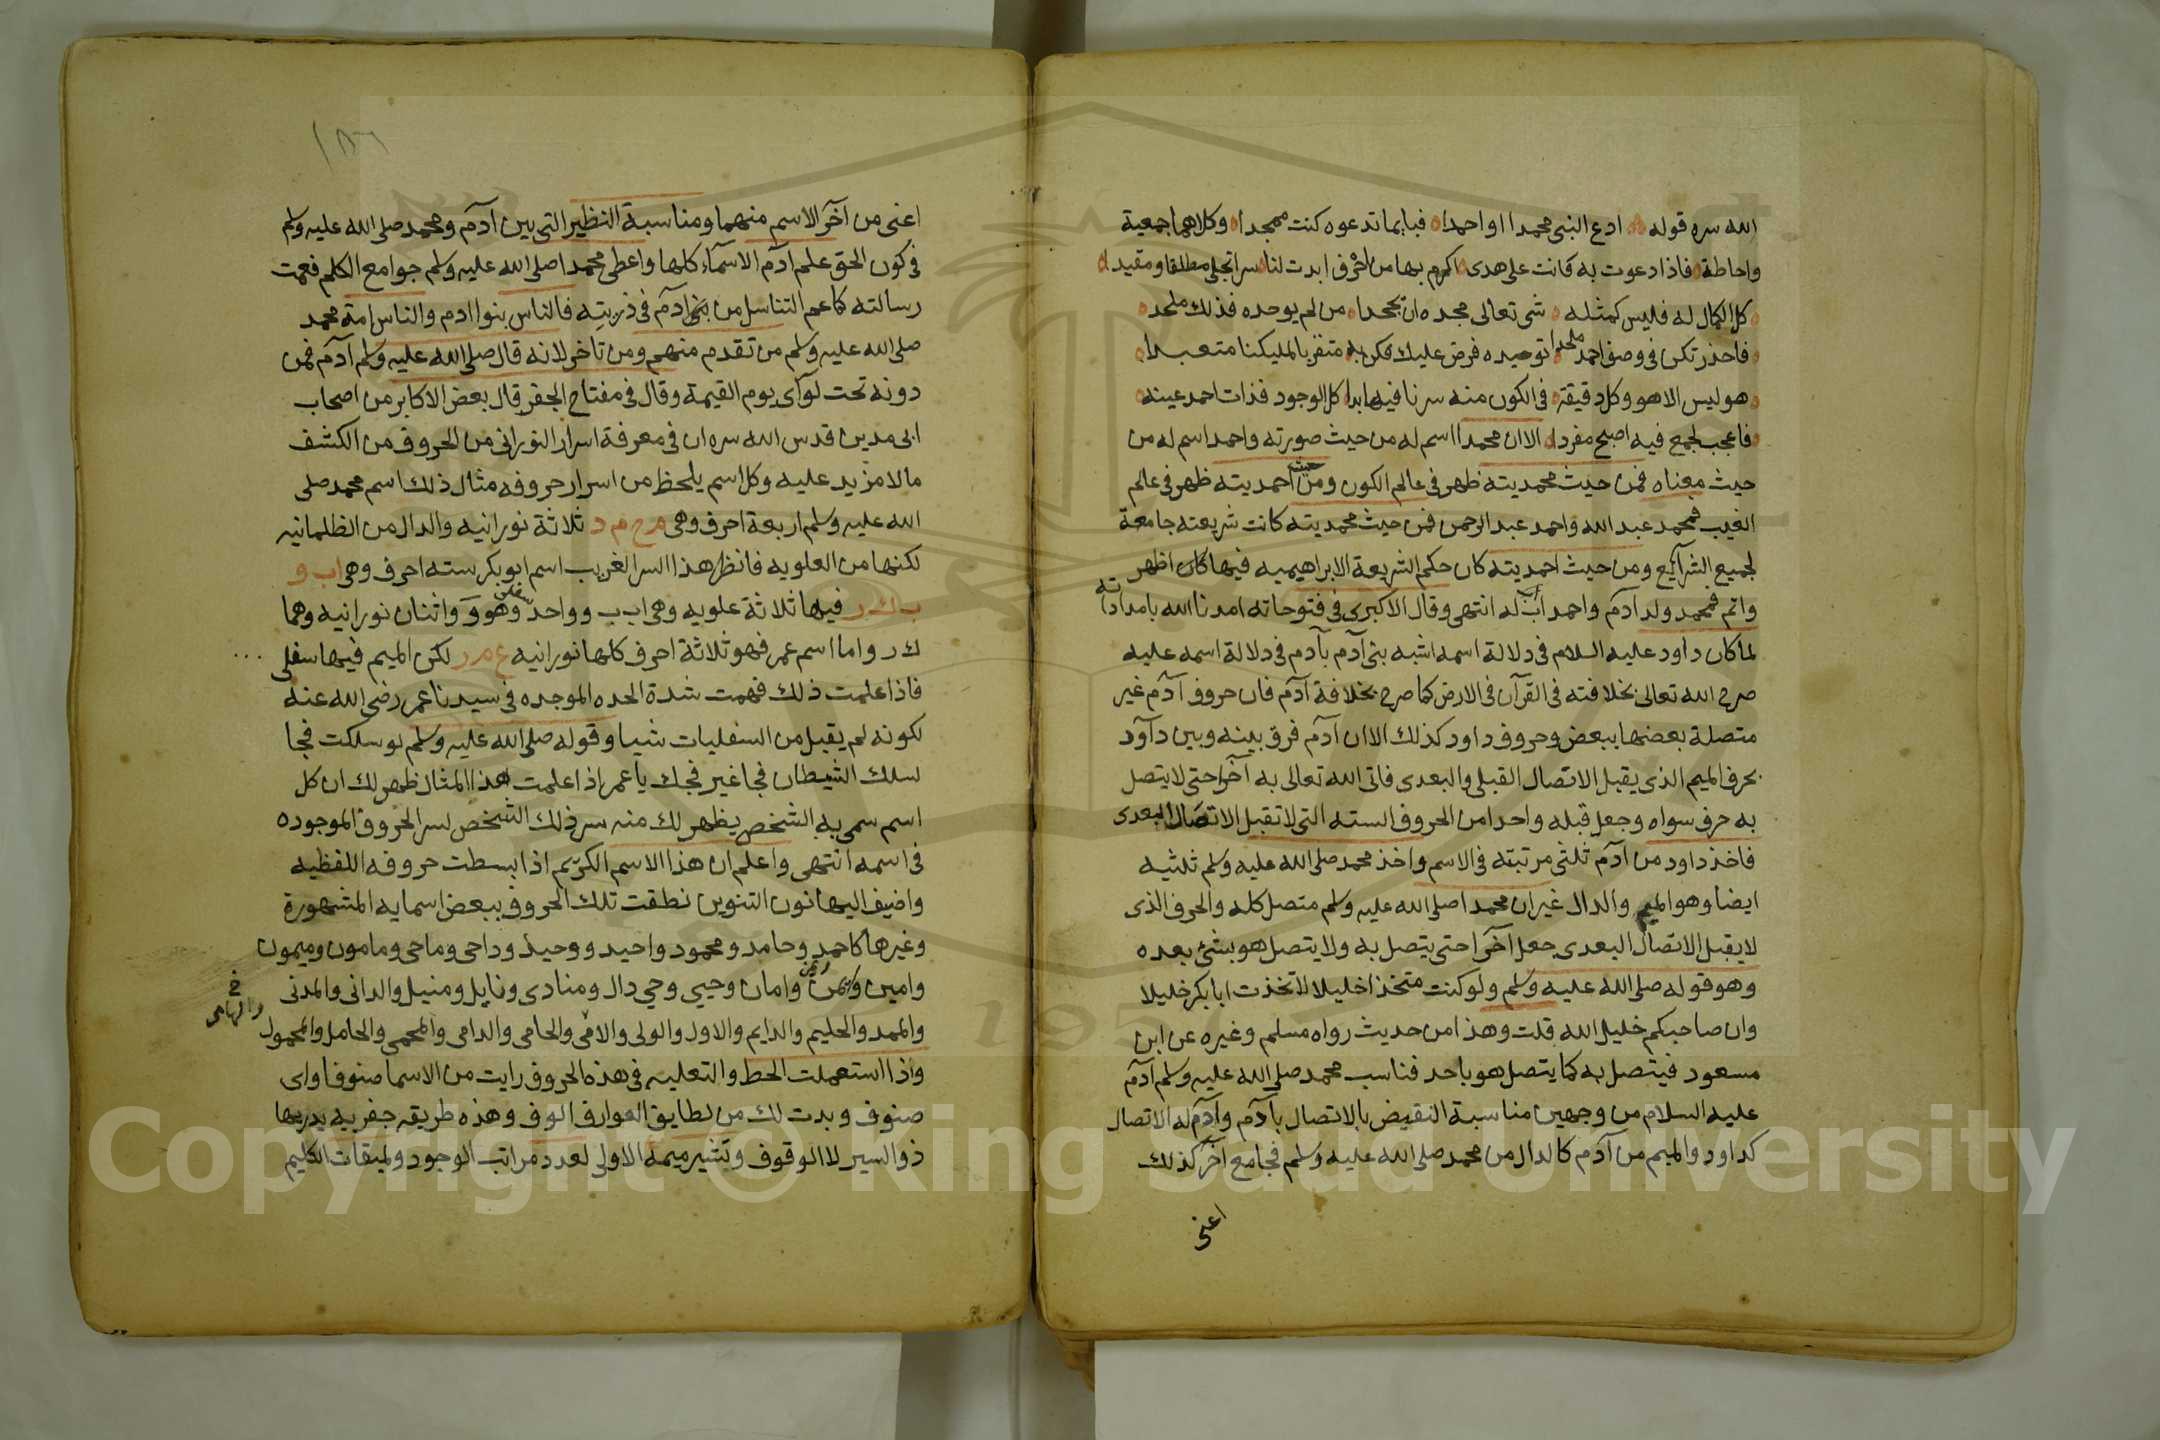 الله سره قوله ادع النبي محمدا او احمدا فبايما تدعوه كنت ممجدا وكلاهما جمعية
واحاطة فاذا دعوت به فانت على هدى اكرم بها من احرف ابدت لنا سر اتجلى مطلقا ومقيدا
كل الكمال له فليس كمثله شي تعالى مجده ان يجحدا من لم يوحده فذلك ملحد
فاحذر تكن في وصف احمد ملحدا توحيده فرض عليك فكن به متقربا لمليكنا متعبدا
هو ليس الا هو وكل دقيقة في الكون منه سرنا فيها بدا كل الوجود فذات احمد عينه
فاعجب لجمع فيه اصبح مفردا الا ان محمدا اسم له من حيث صورته واحمد اسم له من
حيث معناه فمن حيث محمديته ظهر في عالم الكون ومن حيث احمديته ظهر في عالم
الغيب فمحمد عبد الله واحمد عبد الرحمن فمن حيث محمديته كانت شريعته جامعة
لجميع الشرآيع ومن حيث احمديته كان حكم الشريعة الابراهيميه فيها كان اظهر
واتم فمحمد ولد آدم واحمد اب له انتهى وقال الاكبرى في فتوحاته امدنا الله بامداداته
لما كان داود عليه السلام في دلالة اسمه اشبه بني آدم بآدم في دلالة اسمه عليه
صرح الله تعالى بخلافته في القرآن في الارض كما صرح بخلافة آدم فان حروف آدم غير
متصلة بعضها ببعض وحروف داود كذلك الا ان آدم فرق بينه وبين دآود
بحرف الميم الذي يقبل الاتصال القبلي والبعدى فاتى الله تعالى به آخرا حتى لا يتصل
به حرف سواه وجعل قبله واحدا من الحروف السته التي لا تقبل الاتصال البعدى
فاخذ داود من آدم ثلثي مرتبته في الاسم واخذ محمد صلى الله عليه وسلم ثلثيه
ايضا وهو الميم والدال غير ان محمدا صلى الله عليه وسلم متصل كله والحرف الذى
لا يقبل الاتصال البعدى جعل آخرا حتى يتصل به ولا يتصل هو بشئ بعده
وهو قوله صلى الله عليه وسلم ولو كنت متخذا خليلا لاتخذت ابا بكر خليلا
وان صاحبكم خليل الله قلت وهذا من حديث رواه مسلم وغيره عن ابن
مسعود فيتصل به كما يتصل هو باحد فناسب محمد صلى الله عليه وسلم آدم
عليه السلام من وجهين مناسبة النقيض بالاتصال بآدم وآدم له الاتصال
كداود والميم من آدم كالدال من محمد صلى الله عليه وسلم فجامع آخر كذلك
اعنى
١٨٦
اعنى من آخر الاسم منهما ومناسبة النظير التي بين آدم ومحمد صلى الله عليه وسلم
في كون الحق علم آدم الاسمآء كلها واعطى محمدا صلى الله عليه وسلم جوامع الكلم فعمت
رسالته كما عم التناسل من بني آدم في ذريته فالناس بنوا ادم والناس امة محمد
صلى الله عليه وسلم من تقدم منهم ومن تاخر لانه قال صلى الله عليه وسلم آدم فمن
دونه تحت لوآى يوم القيمة وقال في مفتاح الجفر قال بعض الاكابر من اصحاب
ابى مدين قدس الله سره ان في معرفة اسرار النورانى من الحروف من الكشف
مالا مزيد عليه وكل اسم يلحظ من اسرار حروفه مثال ذلك اسم محمد صلى
الله عليه وسلم اربعة احرف وهى م ح م د ثلاثة نورانيه والدال من الظلمانيه
لكنها من العلويه فانظر هذا السر الغريب اسم ابو بكر سته احرف وهى اب و
ب ك ر فيها ثلاثة علويه وهى اب ب وواحد سفلى وهو و واثنان نورانيه وهما
ك ر واما اسم عمر فهو ثلاثة احرف كلها نورانيه ع م ر لكن الميم فيها سفلى
فاذا علمت ذلك فهمت شدة الحده الموجده في سيدنا عمر رضى الله عنه
لكونه لم يقبل من السفليات شيا وقوله صلى الله عليه وسلم لو سلكت فجا
لسلك الشيطان فجا غير فجك يا عمر اذا علمت هذا المثال ظهر لك ان كل
اسم سمى به الشخص يظهر لك منه سر ذلك الشخص لسر الحروف الموجوده
في اسمه انتهى واعلم ان هذا الاسم الكريم اذا بسطت حروفه اللفظيه
واضيف اليها نون التنوين نطقت تلك الحروف ببعض اسمايه المشهورة
وغيرها كاحمد وحامد ومحمود واحيد ووحيد وداحى وماحى ومامون وميمون
وامين ويمن وامان وحيي وحي دال ومنادى ونايل ومنيل والدانى والمدنى
والممد والحليم والدايم والاول والولى والامي والحامى والدامى والمحمى والحامل والمحمول
واذا استعملت الحط والتعليه في هذه الحروف رايت من الاسما صنوفا واى
صنوف وبدت لك من لطايف العوارف الوف وهذه طريقه جفريه يدريها
ذوا السير لا الوقوف وتشير ميمه الاولى لعدد مراتب الوجود ولميقات الكليم
Copyright © King Saud University